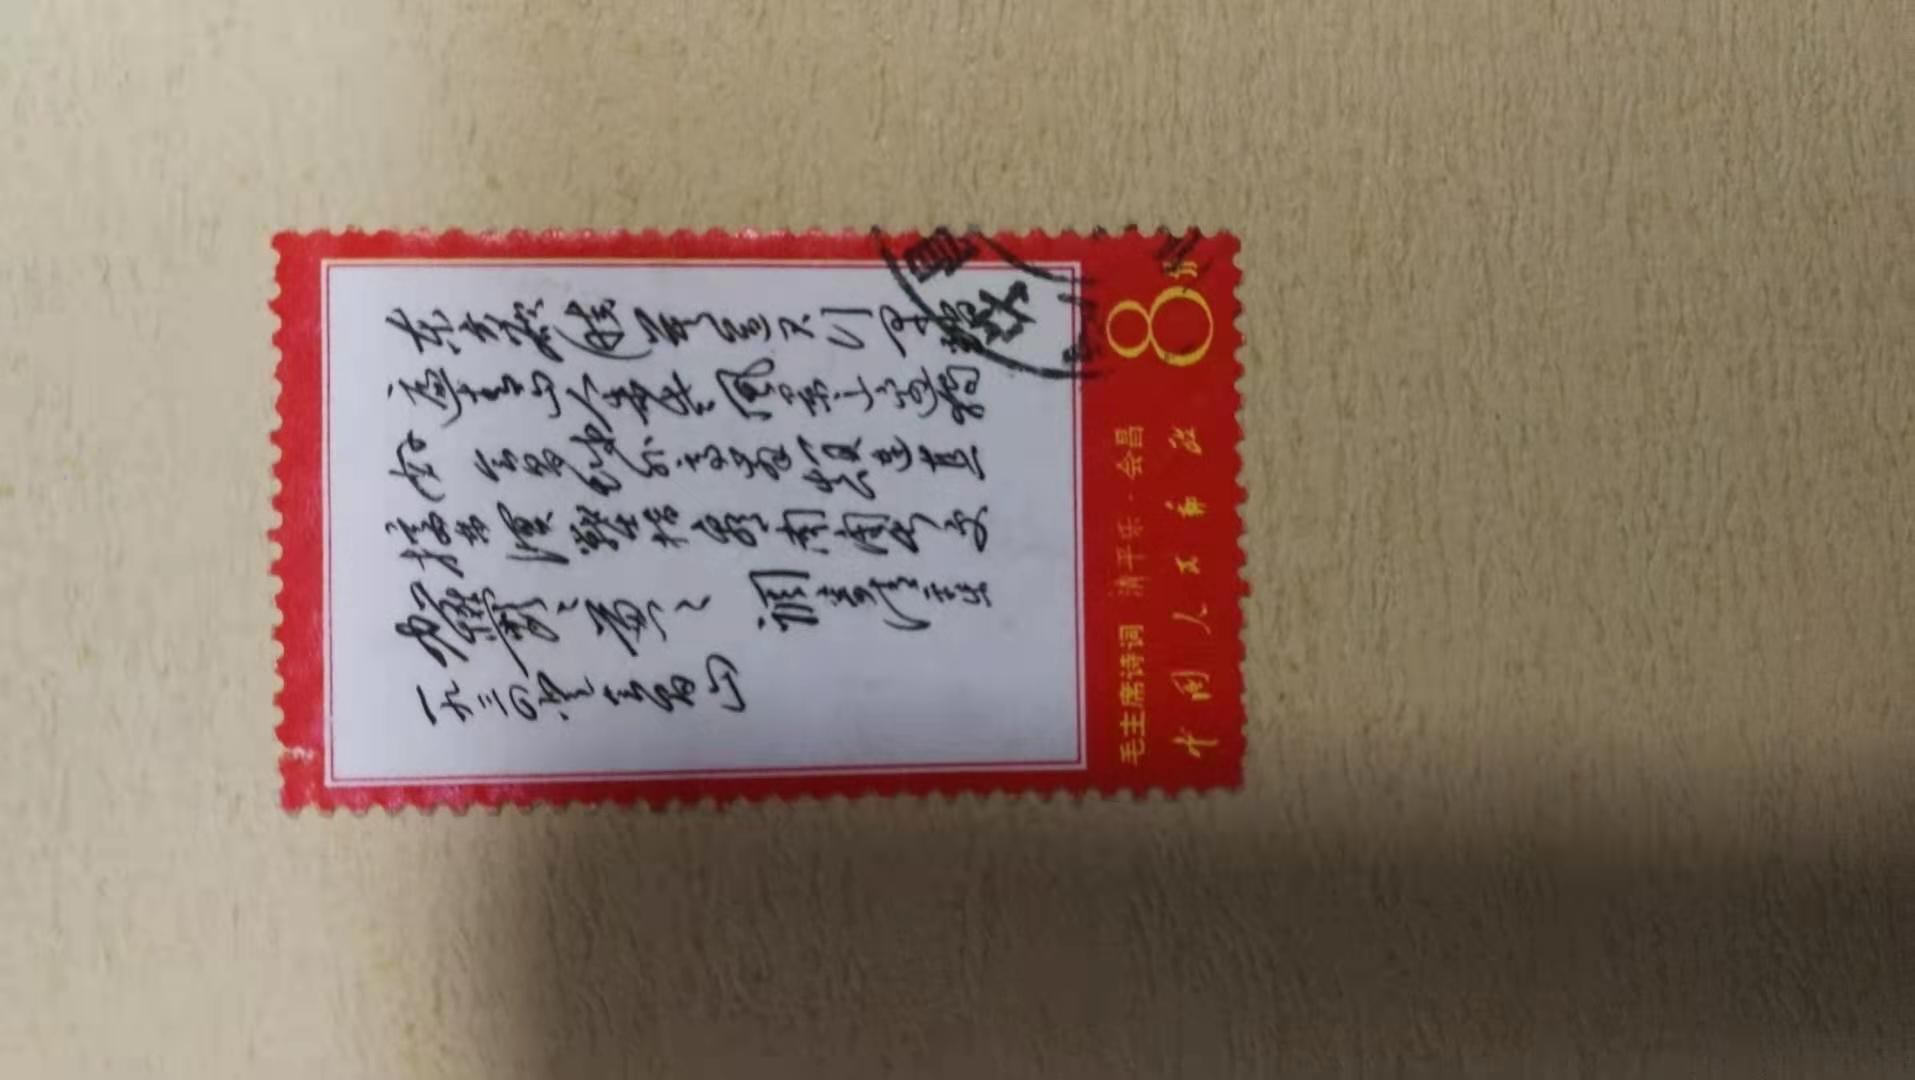 东方欲晓莫道君行早
踏遍青山人未老风景这边独
好会昌城外高峰颠连直
接东溟战士指看南粤更
加郁々葱々 调寄清平乐
一九三四 会昌山
毛主席诗词 清平乐·会昌
中国人民邮政
8分